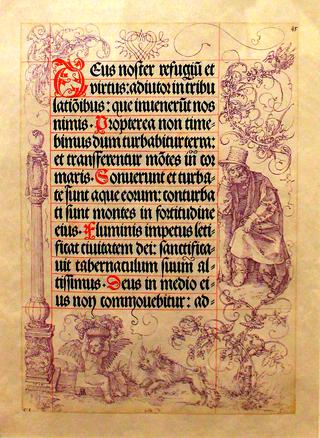 45
Deus noster refugiū et
virtus: adiutor in tribu
latiōibus: que inuenerūt nos
nimis. Propterea non time-
bimus dum turbabitur term:
et transferentur mōtes in cor
maris. Sonuerunt et turba-
te sunt aque eorum: conturba
ti sunt montes in fortitudine
eius. Fluminis impetus leti-
ficat ciuitatem dei: sanctifica-
uit tabernaculum suum al-
tissimus. Deus in medio ei-
us non commouebitur: ad-